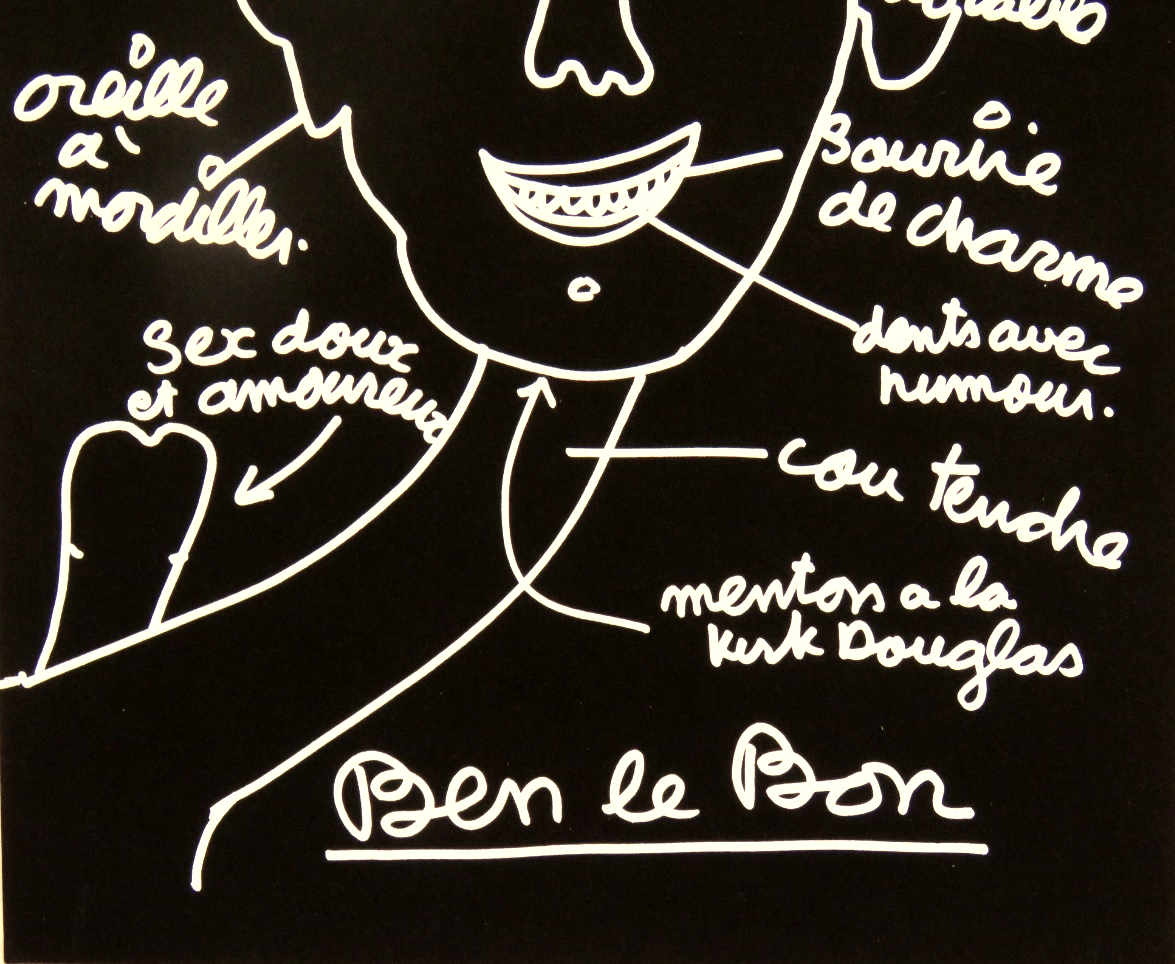 oreille
à
mordiller.
Sourire
de charme
dents avec
humour.
sex doux
et amoureux
cou tendre
menton a la
Kirk Douglas
Ben le Bon